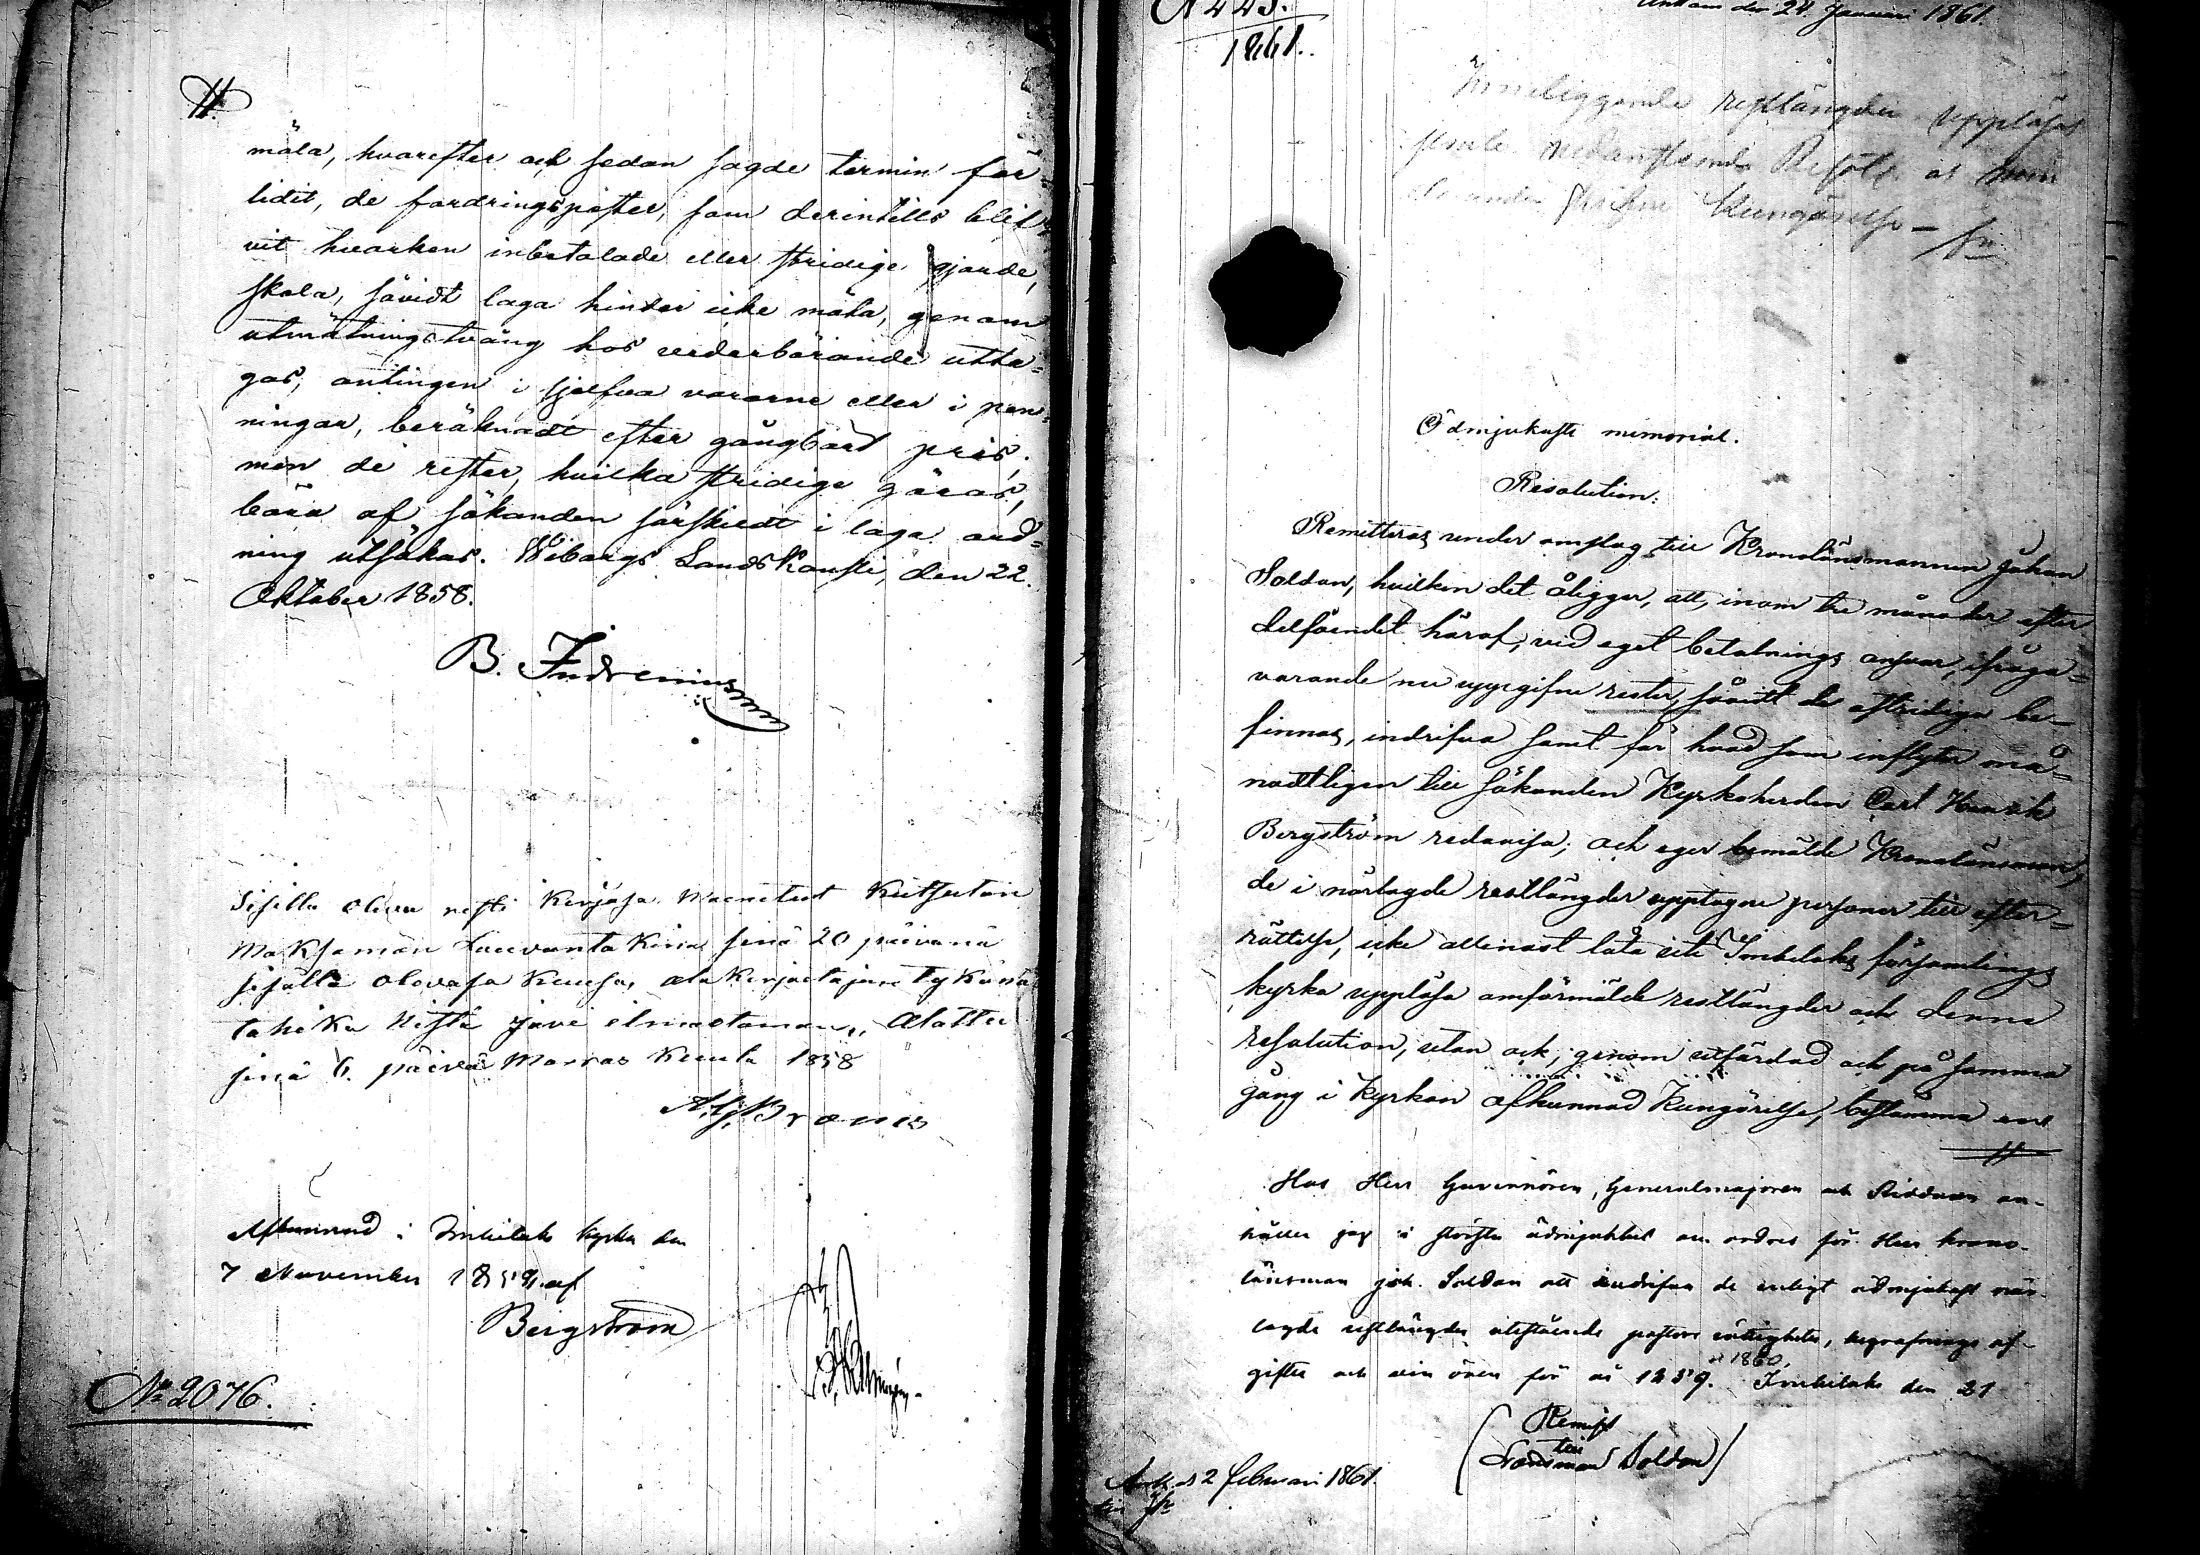 mäla, hvarefter och sedan sagde termin för-
lidit, de fordringsposter, som derintills blif-
vit hvarken inbetalade eller stridige gjorde,
skola, såvidt laga hinder icke möta, genom
utmätningstvång hos vederbörande utta=
gas, antingen i sjelfva vararne eller i pen=
ningar, beräknadt efter gångbart pris;
men de rester, hvilka stridige göras,
böra af sökanden särskildt i laga ord=
ning utsökas. Wiborgs Landskansli, den 22.
Oktober 1858.
B. Indrenius
Sisällä olewa resti kirjasa mainitut
maksaman sinä 20 päivänä
sisällä olevasa kuusa, ala kirjoitajan tykönä
sinä 6. päivä Marras kuuta 1858
Afkunnad i Imbilaks kyrka den
7 November 1858 af
Bergström
No 2076.
No 445.
1861.
den 24 Januari 1861
Inneliggande restlängder uppläses
Kungörelse
Ödmjukaste memorial.
Resolution:
Remitteras under omslag till Kronolänsmannen Johan
Soldan, hvilken det åligger, att, inom tre månader efter
delfåendet häraf, vid eget betalnings ansvar, ifråga=
varande nu uppgifne rester, såvidt de ostridiga be-
finnas, indrifva samt för hvad som inflyter må=
nadtligen till sökanden Kyrkoherden Carl Henrik
Bergström redovisa; och eger bemälde Kronolänsman,
de i närlagde restlängder upptagne personer till efter=
rättelse, icke allenast låta uti Imbilaks församlings
kyrka uppläsa omförmälde restlängder och denne
resolution, utan ock, genom utfärdad och på samma
gång i kyrkan afkunnad Kungörelse, bestämma en
Hos Herr Guvernören, Generalmajoren och Riddaren an-
håller jag i största ödmjukhet om ordres för Herr krono-
länsman Joh. Soldan att indrifva de enligt ödmjukast när-
lagde restlängder utestående pastors rättigheter, begrafnings af-
gifter och min ören för år 1859. o 1860. Imbilaks den 21
Remiss
till
Länsman Soldan
d 2 Februari 1861.